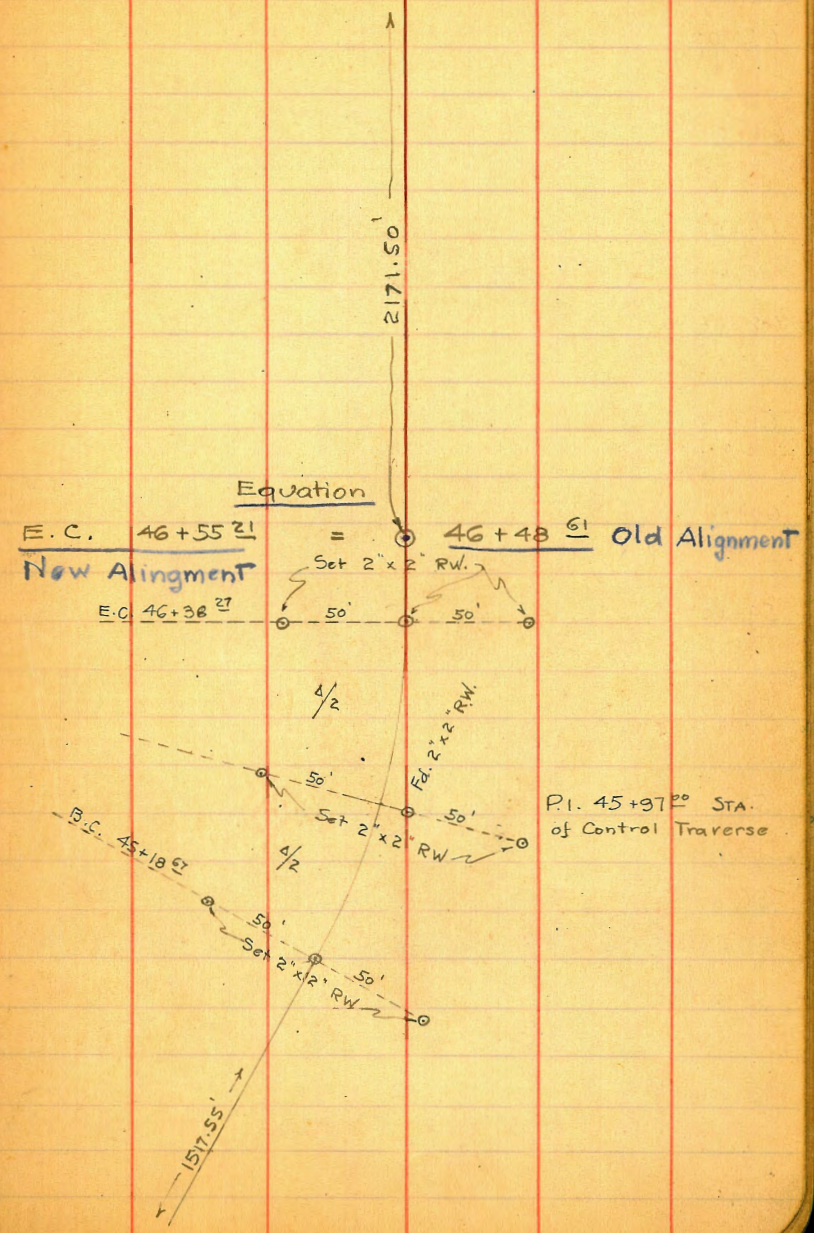 2171.50'
Equation
E.C. 46+55 21 = 46+48 61 Old Alignment
New Alingment
Set 2"x2" RW.
E.C. 46+38 27 50' 50'
Δ/2
Fd. 2"x2" RW.
50' 50'
Set 2"x2" RW
P.I. 45+97 00 STA.
of Control Traverse
B.C. 45+18 67
Δ/2
50' 50'
Set 2"x2" RW
1517.55'